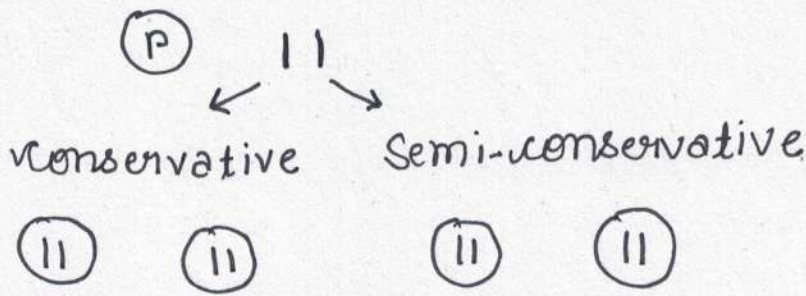 P
conservative semi-conservative